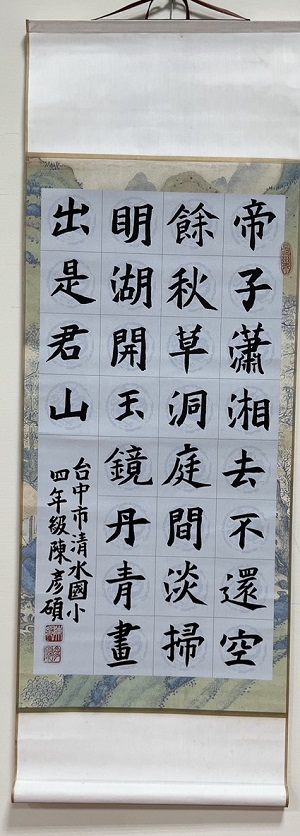 帝子瀟湘去不還空
餘秋草洞庭間淡掃
明湖開玉鏡丹青畫
出是君山
台中市清水國小
四年級陳彥碩